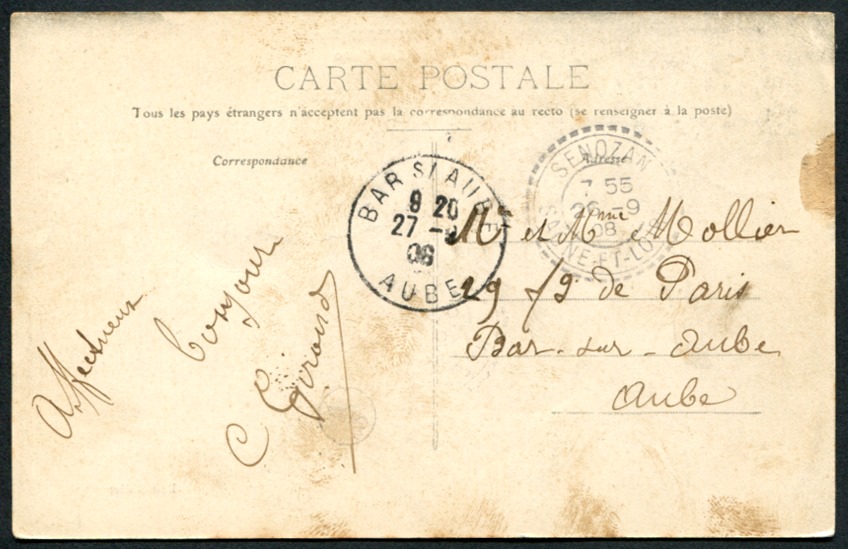 CARTE POSTALE
Tous les pays étrangers n'acceptent pas la correspondance au recto (se renseigner à la poste)
Correspondance
Adresse
SENOZAN
7 55
26 -9
08
SAONE-ET-LOIRE
BAR S/ AUBE
9 20
27 -9
08
AUBE
Mr et Mme Mollier
29 fg de Paris
Bar-sur-Aube
Aube
Affectueux
bonjour
C Giroud